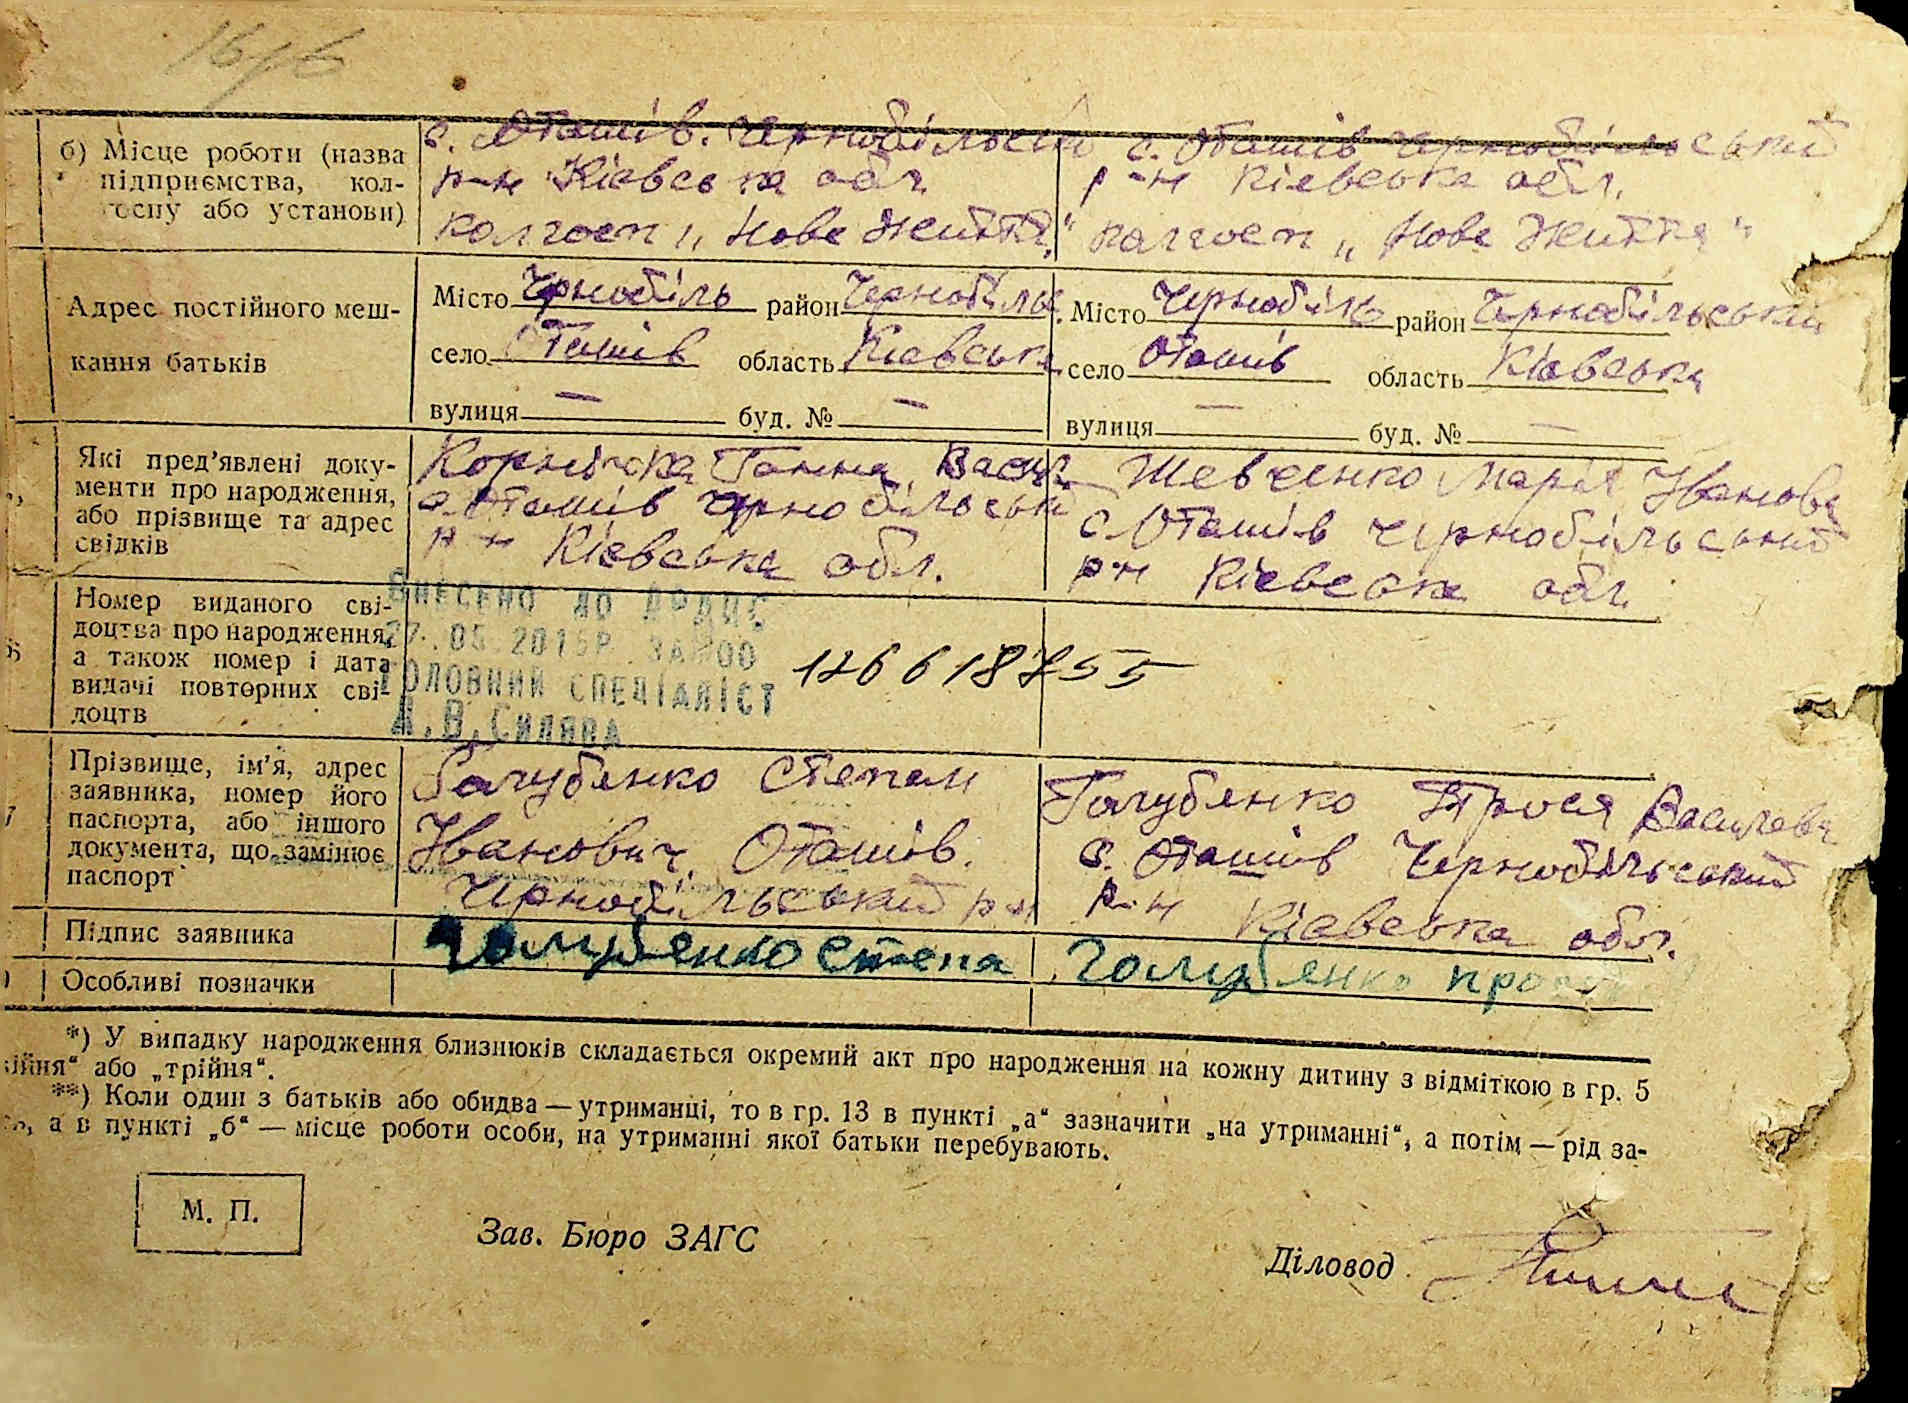 16/6
б) Місце роботи (назва
підприємства, кол-
госпу або установи)
с. Оташів. Чернобільський
р-н Кіевська обл.
колгосп „Нове Життя"
с. Оташів Чернобільський
р-н Кіевська обл.
колгосп „Нове Життя"
Адрес постійного меш-
кання батьків
Місто Чернобіль район Чернобільс.
село Оташів область Кіевська
вулиця — буд. № —
Місто Чернобіль район Чернобільський
село Оташів область Кіевська
вулиця — буд. № —
Які пред’явлені доку-
менти про народження,
або прізвище та адрес
свідків
Ганна Васил
с. Оташів Чернобільськ
р-н Кіевська обл.
Шевченко Марія Іванова
с. Оташів Чернобільський
р-н Кіевська обл.
Номер виданого сві-
доцтва про народження,
а також номер і дата
видачі повторних сві-
доцтв
ВНЕСЕНО ДО ДРАЦС
27.05.2015Р. ЗА №00
ГОЛОВНИЙ СПЕЦІАЛІСТ
126618755
Прізвище, ім’я, адрес
заявника, номер його
паспорта, або іншого
документа, що замінює
паспорт
Голубенко Степан
Іванович Оташів.
Чернобільський р-н
Голубенко Прося Василева
с. Оташів Чернобільський
р-н Кіевська обл.
Підпис заявника
Голубенко Степа
Голубенко
Особливі позначки
*) У випадку народження близнюків складається окремий акт про народження на кожну дитину з відміткою в гр. 5
ійня“ або „трійня“.
**) Коли один з батьків або обидва — утриманці, то в гр. 13 в пункті „а“ зазначити „на утриманні“, а потім — рід за-
, а в пункті „б“ — місце роботи особи, на утриманні якої батьки перебувають.
М. П.
Зав. Бюро ЗАГС
Діловод